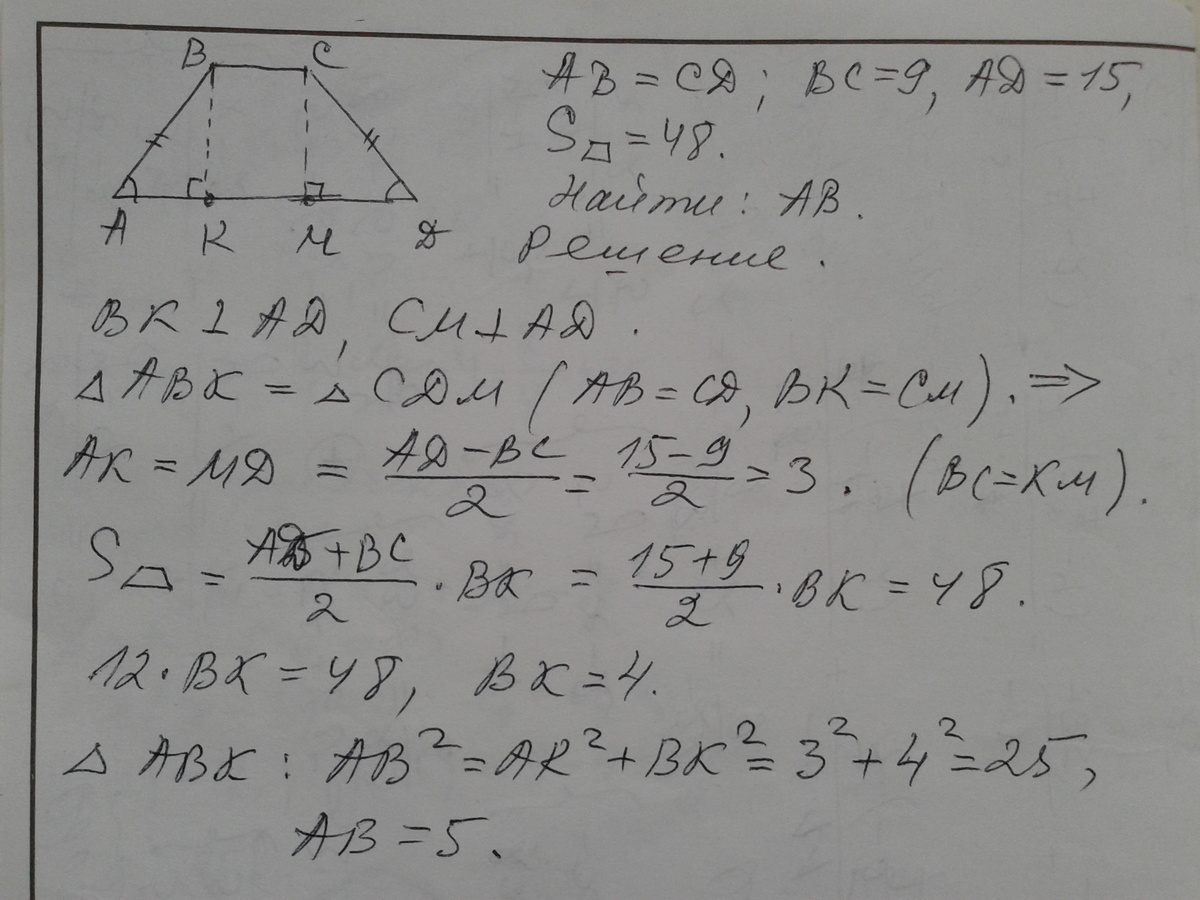 B C
A K M D
AB = CD; BC = 9, AD = 15,
S⏢ = 48.
Найти: AB.
Решение.
BK ⊥ AD, CM ⊥ AD.
△ ABK = △ CDM (AB = CD, BK = CM). ⇒
AK = MD = (AD − BC)/2 = (15 − 9)/2 = 3. (BC = KM).
S⏢ = (AD + BC)/2 · BK = (15 + 9)/2 · BK = 48.
12 · BK = 48, BK = 4.
△ ABK: AB² = AK² + BK² = 3² + 4² = 25,
AB = 5.